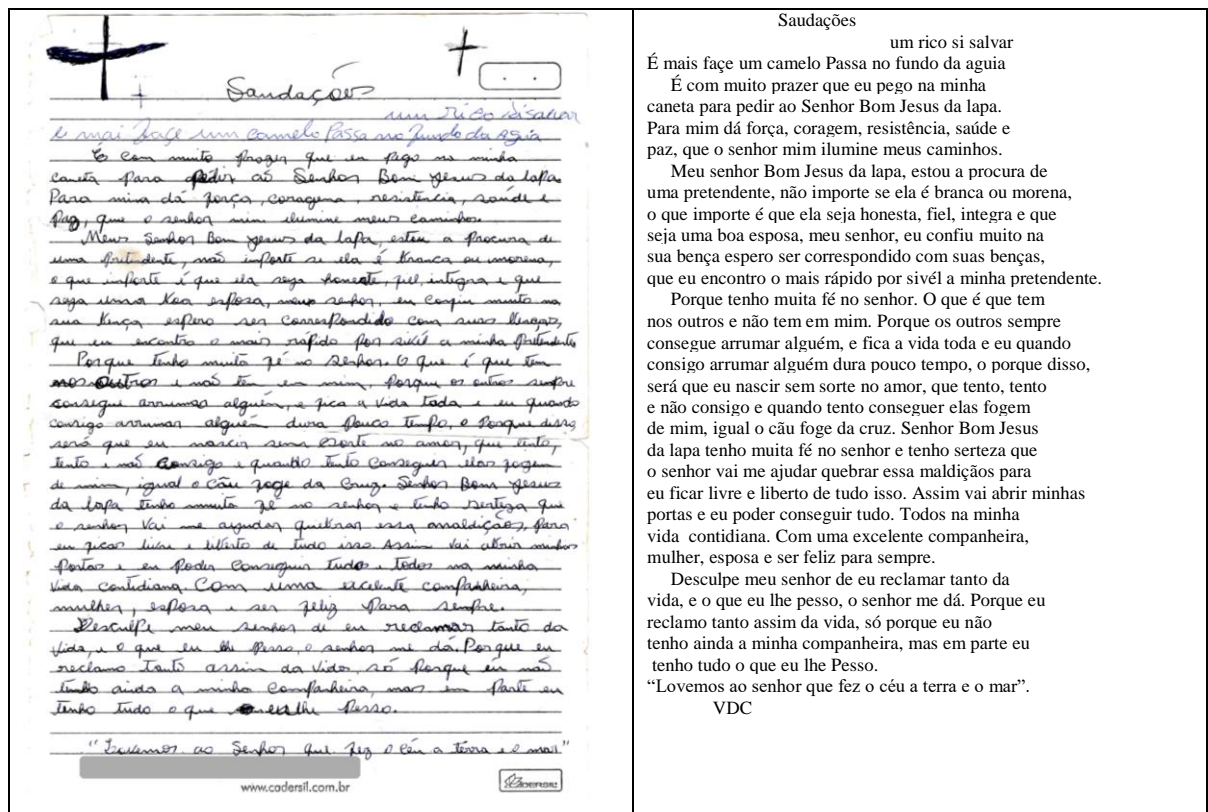 Saudações
um rico si salvar
e mai façe um camelo Passa no fundo da aguia
É com muito prazer que eu pego na minha
caneta para pedir ao Senhor Bom Jesus da lapa.
Para mim dá força, coragem, resistência, saúde e
Paz, que o senhor mim ilumine meus caminhos.
Meus Senhor Bom Jesus da lapa, estou a Procura de
uma pretendente, não importe se ela é branca ou morena,
o que importe é que ela seja honeste, fiel, integra e que
seja uma boa esposa, meu senhor, eu confiu muito na
sua bença espero ser correspondido com suas bençãs,
que eu encontro o mais rápido por sivél a minha Pretendente
Porque tenho muita fé no senhor. O que é que tem
nos outros e não tem em mim. Porque os outros sempre
consegue arrumar alguém, e fica a vida toda e eu quando
consigo arrumar alguém dura Pouco tempo, o Porque disso
será que eu nascir sem sorte no amor, que tento,
tento e não consigo e quando tento conseguer elas fogem
de mim, igual o cãu foge da Cruz. Senhor Bom Jesus
da lapa tenho muita fé no senhor e tenho serteza que
o senhor vai me ajudar quebrar essa maldiçãos, Para
eu ficar livre e liberto de tudo isso. Assim vai abrir minhas
Portas e eu Poder conseguir tudo e todos na minha
vida contidiana. Com uma excelente companheira,
mulher, esposa e ser feliz Para sempre.
Desculpe meu senhor de eu reclamar tanto da
vida, e o que eu lhe Pesso, o senhor me dá. Porque eu
reclamo tanto assim da vida, só Porque eu não
tenho ainda a minha Companheira, mas em Parte eu
tenho tudo o que eu lhe Pesso.
"Lovemos ao Senhor que fez o céu a terra e o mar"
www.cadersil.com.br
CADERSIL
Saudações
um rico si salvar
É mais façe um camelo Passa no fundo da aguia
É com muito prazer que eu pego na minha
caneta para pedir ao Senhor Bom Jesus da lapa.
Para mim dá força, coragem, resistência, saúde e
paz, que o senhor mim ilumine meus caminhos.
Meu senhor Bom Jesus da lapa, estou a procura de
uma pretendente, não importe se ela é branca ou morena,
o que importe é que ela seja honesta, fiel, integra e que
seja uma boa esposa, meu senhor, eu confiu muito na
sua bença espero ser correspondido com suas benças,
que eu encontro o mais rápido por sivél a minha pretendente.
Porque tenho muita fé no senhor. O que é que tem
nos outros e não tem em mim. Porque os outros sempre
consegue arrumar alguém, e fica a vida toda e eu quando
consigo arrumar alguém dura pouco tempo, o porque disso,
será que eu nascir sem sorte no amor, que tento, tento
e não consigo e quando tento conseguer elas fogem
de mim, igual o cãu foge da cruz. Senhor Bom Jesus
da lapa tenho muita fé no senhor e tenho serteza que
o senhor vai me ajudar quebrar essa maldiçãos para
eu ficar livre e liberto de tudo isso. Assim vai abrir minhas
portas e eu poder conseguir tudo. Todos na minha
vida contidiana. Com uma excelente companheira,
mulher, esposa e ser feliz para sempre.
Desculpe meu senhor de eu reclamar tanto da
vida, e o que eu lhe pesso, o senhor me dá. Porque eu
reclamo tanto assim da vida, só porque eu não
tenho ainda a minha companheira, mas em parte eu
tenho tudo o que eu lhe Pesso.
“Lovemos ao senhor que fez o céu a terra e o mar”.
VDC